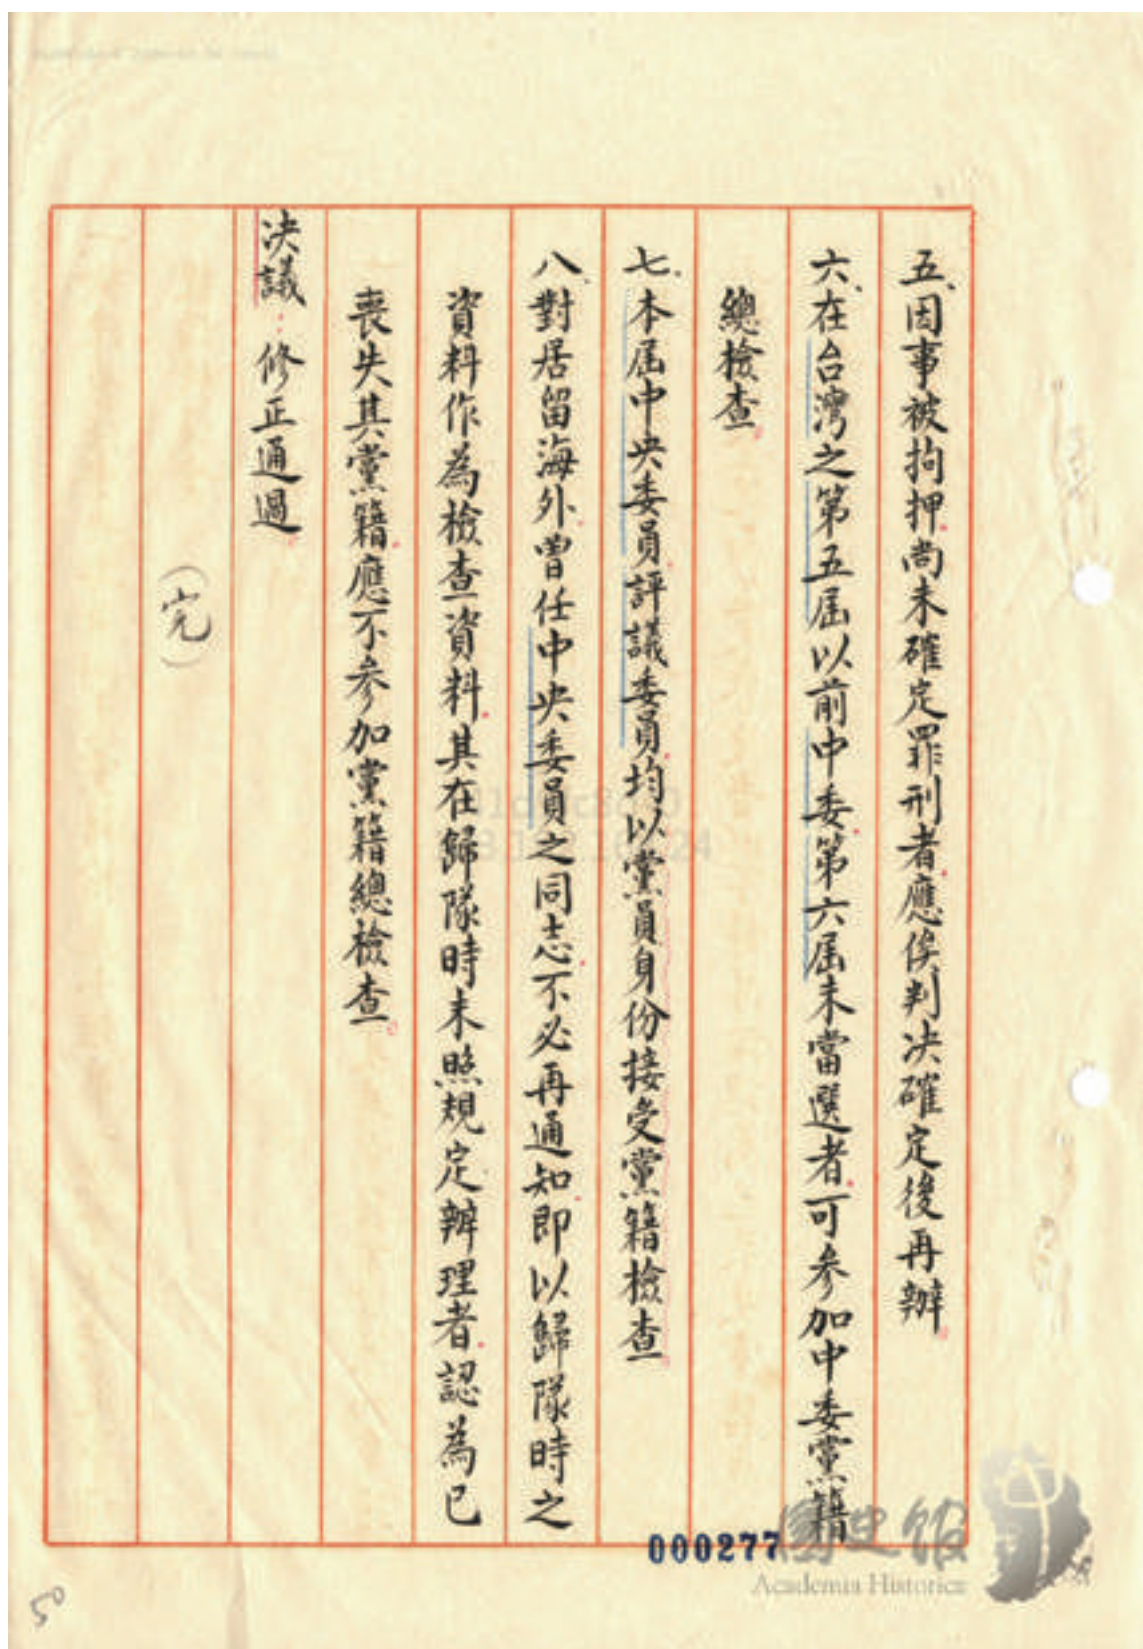 五、因事被拘押尚未確定罪刑者.應俟判決確定後再辦.
六、在台灣之第五屆以前中委.第六屆未當選者.可參加中委黨籍
總檢查.
七、本屆中央委員.評議委員.均以黨員身份接受黨籍檢查.
八、對居留海外.曾任中央委員之同志.不必再通知.即以歸隊時之
資料作為檢查資料.其在歸隊時未照規定辦理者.認為已
喪失其黨籍.應不參加黨籍總檢查.
決議:修正通過.
(完)
000277
國史館
Academia Historica
50